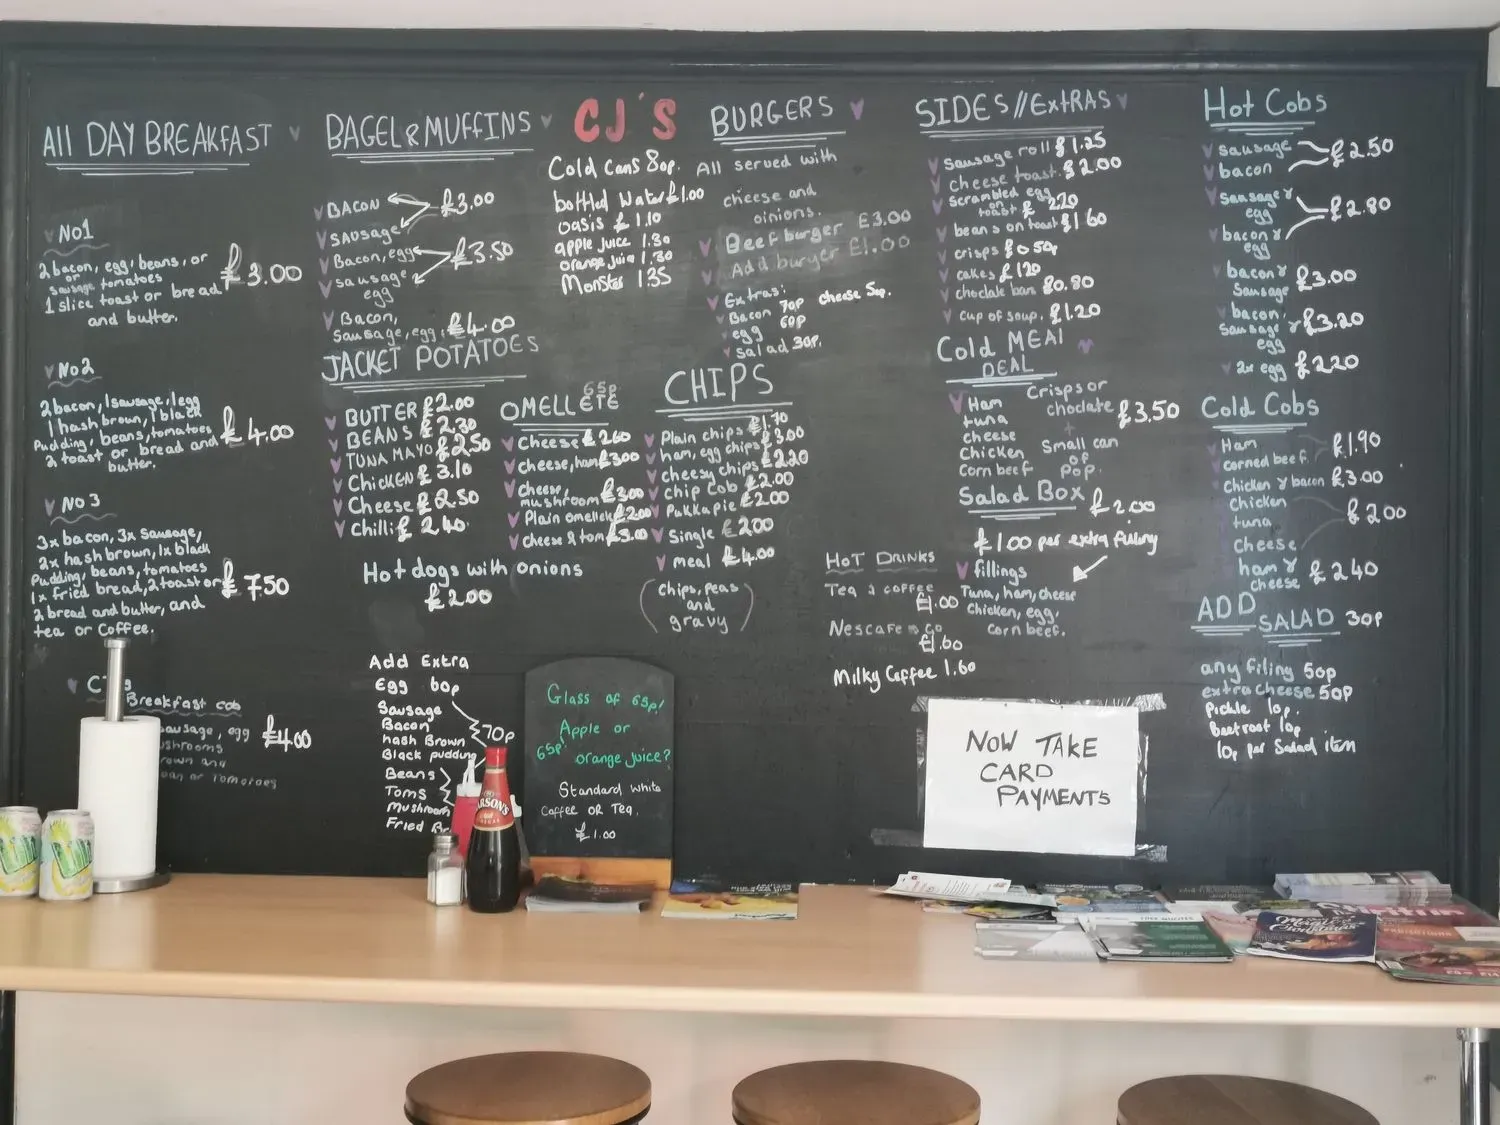 All DAY BREAKFAST
No1
2 bacon, egg, beans, or
or
sausage tomatoes
1 slice toast or bread
and butter.
£3.00
No2
2 bacon, 1 sausage, 1 egg
1 hash brown, 1 black
Pudding, beans, tomatoes
2 toast or bread and
butter.
£4.00
No 3
3x bacon, 3x sausage,
2x hash brown, 1x black
Pudding, beans, tomatoes
1x fried bread, 2 toast or
2 bread and butter, and
tea or Coffee.
£7.50
Breakfast cob
sausage, egg
£4.00
or Tomatoes
BAGEL & MUFFINS
BACON
SAUSAGE
£3.00
Bacon, egg
sausage
egg
£3.50
Bacon,
Sausage, egg, £4.00
JACKET POTATOES
BUTTER £2.00
BEANS £2.30
TUNA MAYO £2.50
CHICKEN £3.10
Cheese £2.50
Chilli £2.40
Hot dogs with onions
£2.00
Add Extra
Egg 60p
Sausage
Bacon
hash Brown
Black pudding
70p
Beans
Toms
Mushroom
Fried
CJ'S
Cold cans 80p.
bottled Water £1.00
oasis £1.10
apple juice 1.30
orange juice 1.30
Monster 1.35
OMELLETE
65p
Cheese £2.60
cheese, ham £3.00
cheese,
mushroom £3.00
Plain omellete £2.00
cheese & tom £3.00
BURGERS
All served with
cheese and
oinions.
Beef burger £3.00
Add burger £1.00
Extras:
Bacon 70p cheese 50p.
egg 60p
salad 30p.
CHIPS
Plain chips £1.70
ham, egg chips £3.00
cheesy chips £2.20
chip cob £2.00
Pukka pie £2.00
Single £2.00
meal £4.00
(chips, peas
and
gravy)
HOT DRINKS
Tea & coffee
£1.00
Nescafe
£1.60
Milky Coffee 1.60
SIDES//ExtRAS
Sausage roll £1.25
cheese toast. £2.00
Scrambled egg
on
toast £2.20
beans on toast £1.60
crisps £0.50p
cakes £1.20
choclate bars £0.80
cup of soup. £1.20
Cold MEAl
DEAL
Ham
tuna
cheese
Chicken
Corn beef
Crisps or
choclate
+
Small can
of
pop.
£3.50
Salad Box £2.00
£1.00 per extra filling
fillings
Tuna, ham, cheese
Chicken, egg,
corn beef.
Hot Cobs
sausage
bacon
£2.50
Sausage &
egg
bacon &
egg
£2.80
bacon &
Sausage
£3.00
bacon,
Sausage &
egg
£3.20
2x egg £2.20
Cold Cobs
Ham
corned beef
£1.90
Chicken & bacon £3.00
Chicken
tuna
cheese
£2.00
ham &
cheese
£2.40
ADD SALAD 30p
any filing 50p
extra cheese 50p
Pickle 10p.
Beetroot 10p
10p per Salad item
Glass of 65p!
Apple or
65p orange juice?
Standard white
Coffee OR Tea.
£1.00
NOW TAKE
CARD
PAYMENTS